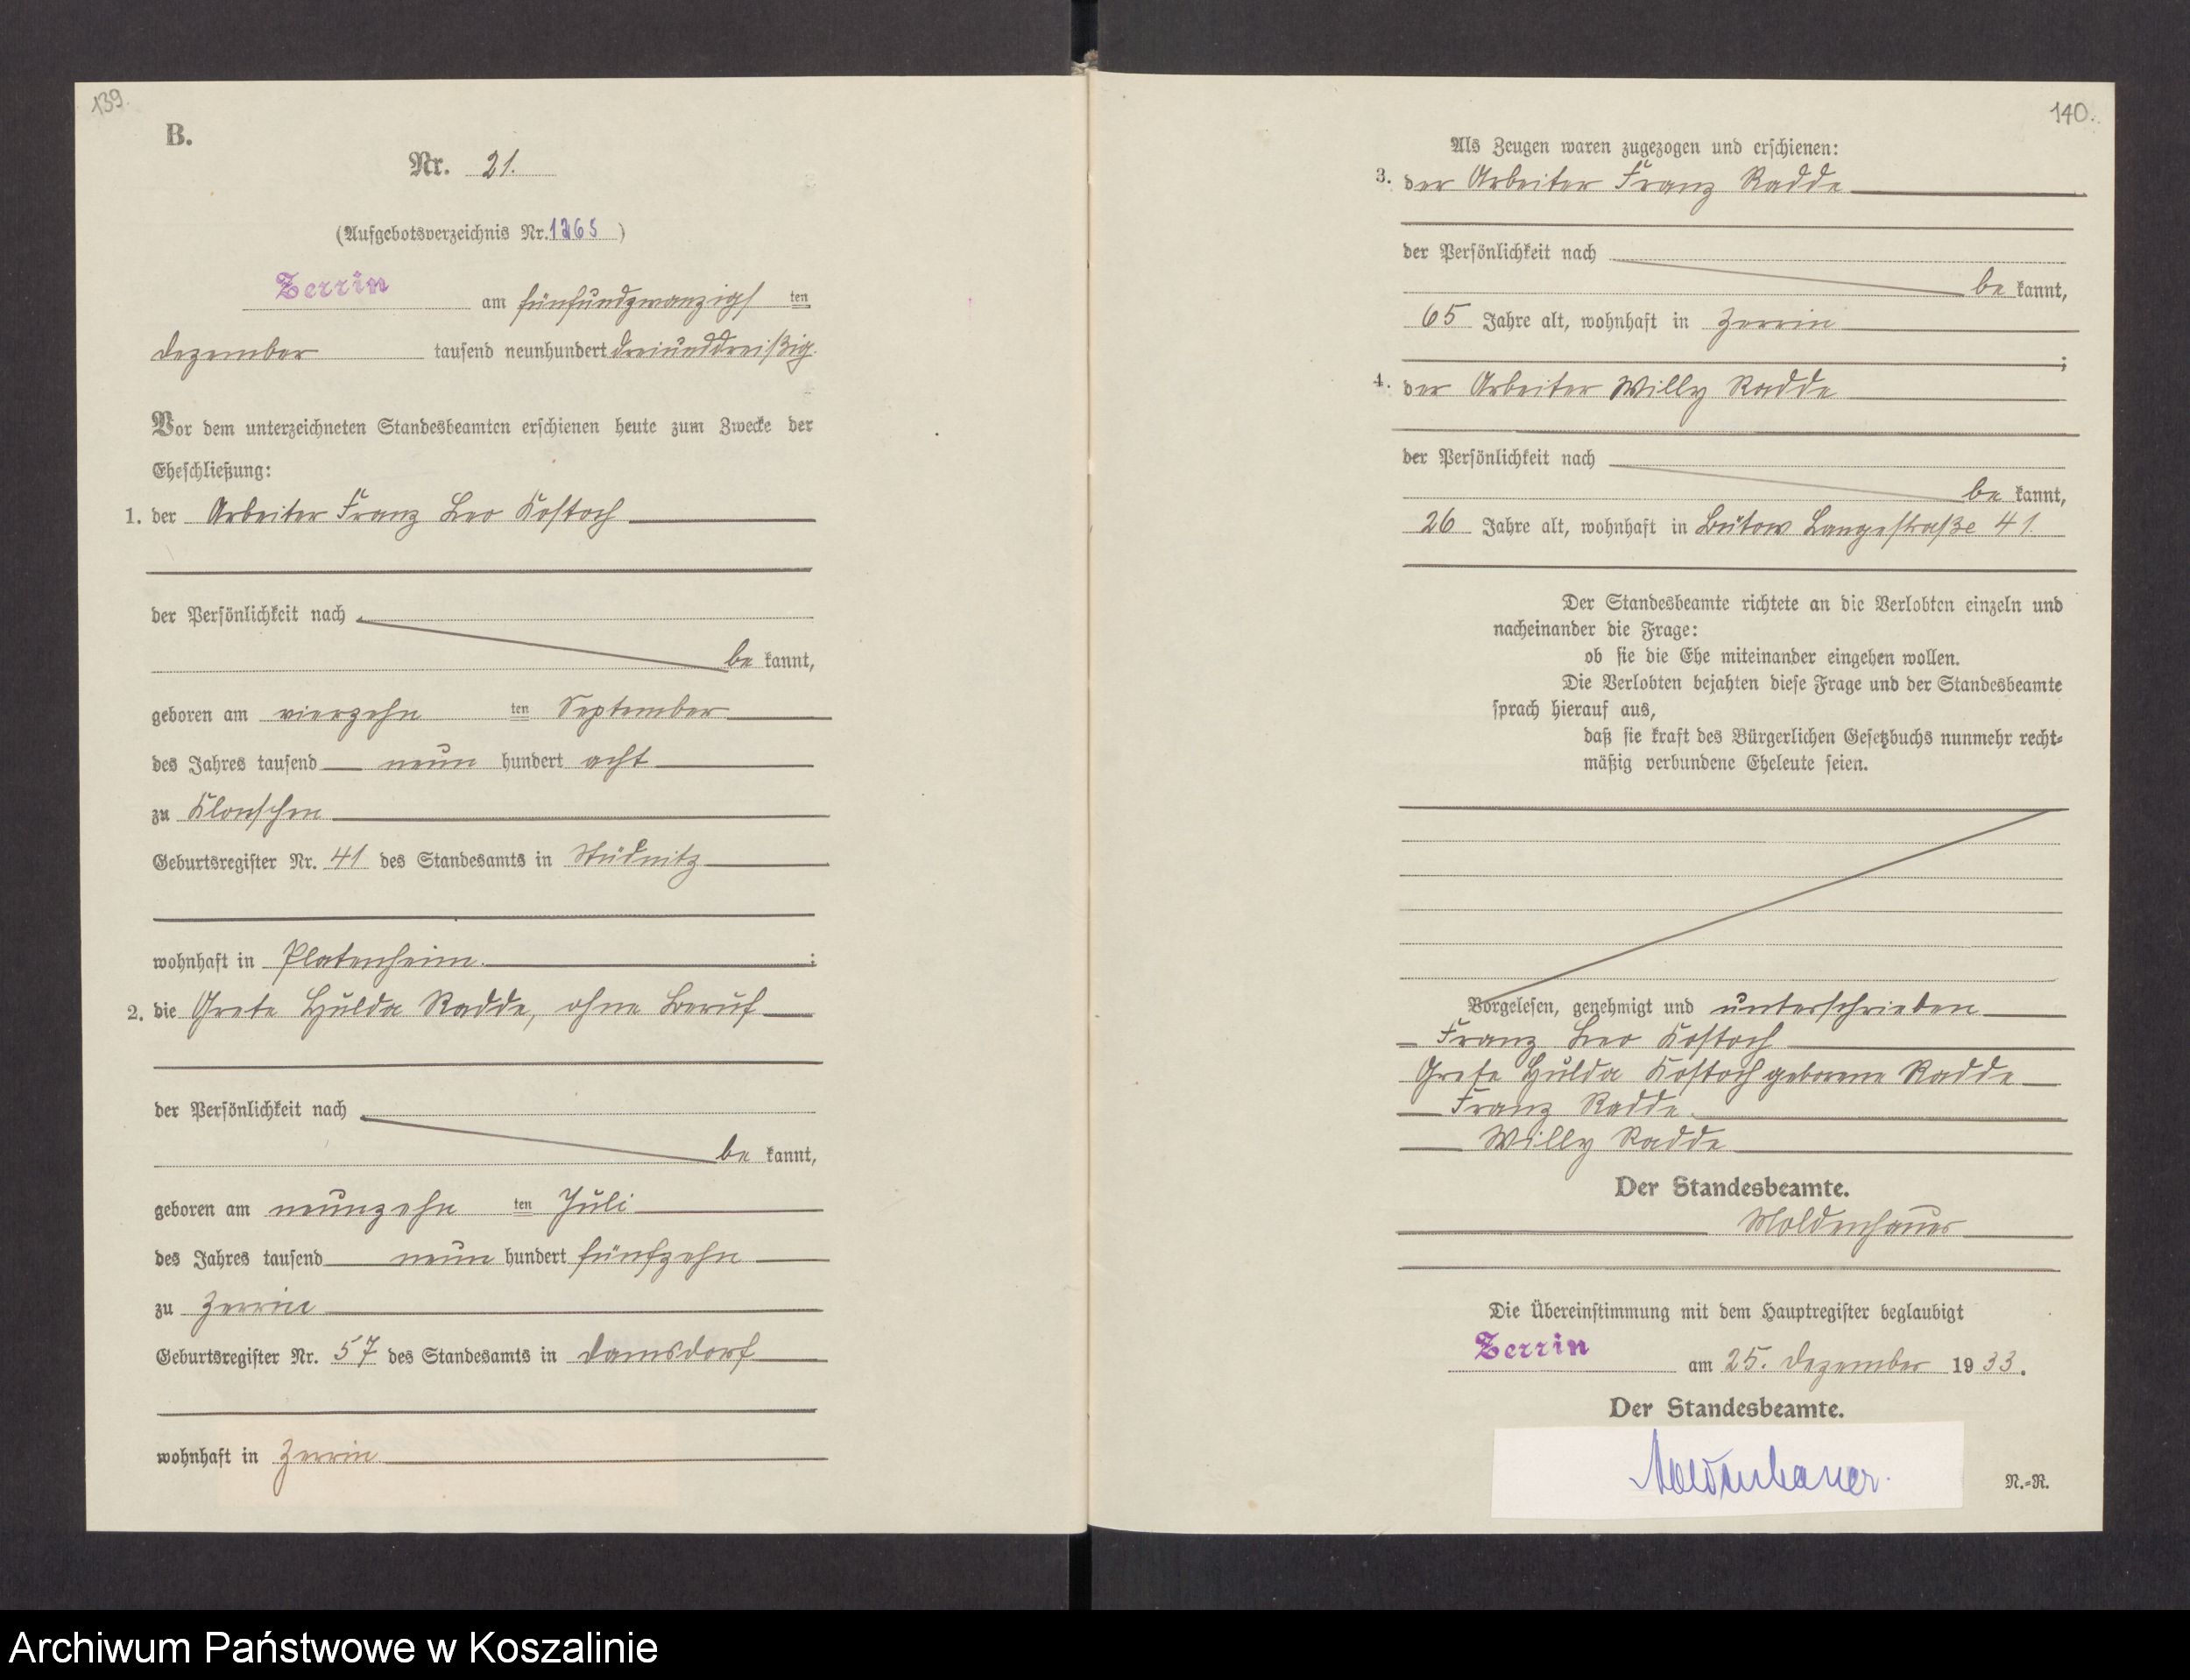 139.
B.
Nr. 21.
(Aufgebotsverzeichnis Nr. 1265)
Zerrin am fünfundzwanzigsten
Dezember tausend neunhundert dreiunddreißig.
Vor dem unterzeichneten Standesbeamten erschienen heute zum Zwecke der
Eheschließung:
1. der Arbeiter Franz Leo Kostoch
der Persönlichkeit nach
be kannt,
geboren am vierzehn ten September
des Jahres tausend neun hundert acht
zu Klonschen
Geburtsregister Nr. 41 des Standesamts in Stüdnitz
wohnhaft in Platenheim. ;
2. die Grete Hulda Radde, ohne Beruf
der Persönlichkeit nach
be kannt,
geboren am neunzehn ten Juli
des Jahres tausend neun hundert fünfzehn
zu Zerrin
Geburtsregister Nr. 57 des Standesamts in Damsdorf
wohnhaft in Zerrin
140.
Als Zeugen waren zugezogen und erschienen:
3. der Arbeiter Franz Radde
der Persönlichkeit nach
be kannt,
65 Jahre alt, wohnhaft in Zerrin
;
4. der Arbeiter Willy Radde
der Persönlichkeit nach
be kannt,
26 Jahre alt, wohnhaft in Bütow Langestraße 41.
Der Standesbeamte richtete an die Verlobten einzeln und
nacheinander die Frage:
ob sie die Ehe miteinander eingehen wollen.
Die Verlobten bejahten diese Frage und der Standesbeamte
sprach hierauf aus,
daß sie kraft des Bürgerlichen Gesetzbuchs nunmehr recht-
mäßig verbundene Eheleute seien.
Vorgelesen, genehmigt und unterschrieben
Franz Leo Kostoch
Grete Hulda Kostoch geborene Radde
Franz Radde.
Willy Radde
Der Standesbeamte.
Moldenhauer
Die Übereinstimmung mit dem Hauptregister beglaubigt
Zerrin am 25. Dezember 1933.
Der Standesbeamte.
Moldenhauer.
N.-R.
Archiwum Państwowe w Koszalinie